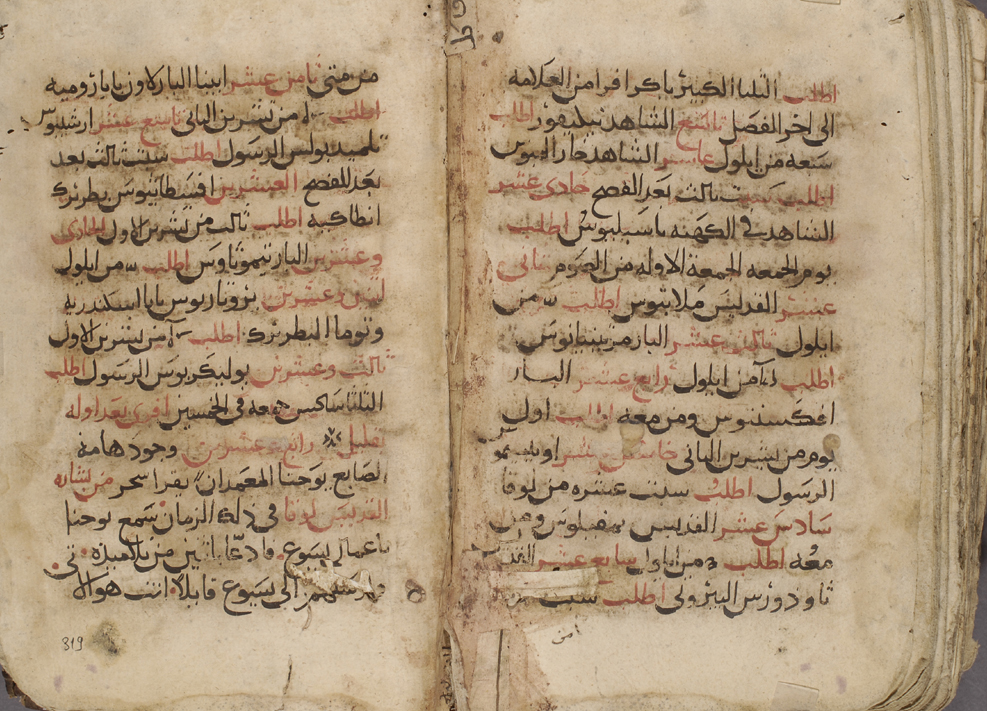 اطلب الثلثا الكبير باكر اقرا من العلامه
الى اخر الفصل تاسع الشاهد نيكيفور اطلب
سبعه من ايلول عاشر الشاهد خارلمبوس
اطلب سبت ثالث بعد الفصح حادى عشر
الشاهد فى الكهنه باسيليوس اطلب
يوم الجمعه الجمعة الاوله من الصوم ثانى
عشر القديس ملاتيوس اطلب من
ايلول ثالث عشر البار مرتينيانوس
اطلب من ايلول رابع عشر البار
افكسنديوس ومن معه اطلب اول
يوم من تشرين الثانى خامس عشر اونيسيمو
الرسول اطلب سبت عشره من لوقا
سادس عشر القديس بمفيلوس ومن
معه اطلب من ايلول سابع عشر القد
ثاودورس التيرونى اطلب سبت
امين
من متى ثامن عشر ابينا البار لاون بابا روميه
اطلب من تشرين الثانى تاسع عشر ارشيبوس
تلميد بولس الرسول اطلب سبت ثالث بعد
بعد الفصح العشرين افسطاتيوس بطريرك
انطاكيه اطلب ثالث من تشرين الاول الحادى
وعشرين البار تيموثاوس اطلب من ايلول
اثنين وعشرين بروتاريوس بابا اسكندريه
وتوما البطريرك اطلب من تشرين الاول
ثالث وعشرين بوليكربوس الرسول اطلب
الثلثا سادس جمعه فى الخمسين اقرى بعد اوله
بقليل رابع وعشرين وجود هامة
الصابغ يوحنا المعمدان يقرا سحر من بشاره
القديس لوقا فى ذلك الزمان سمع يوحنا
باعمال يسوع فادعا اثنين من تلاميذه
الى يسوع قايلا انت هو ال
319